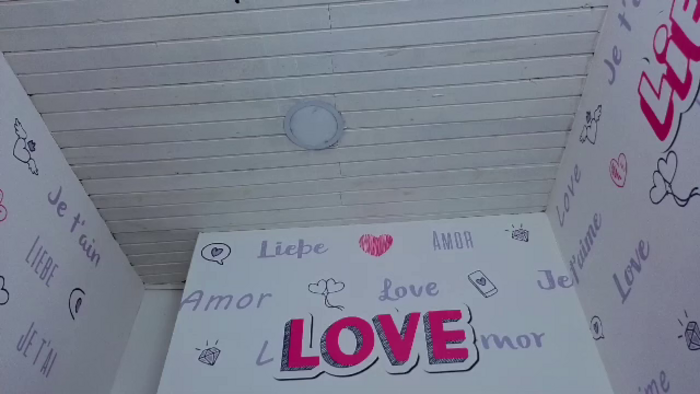 Je t'ain
LIEBE
JE T'AI
Liebe
AMOR
Amor
Love
Je
L
LOVE
mor
Je t'
Lie
Love
Je t'aime
Love
ime